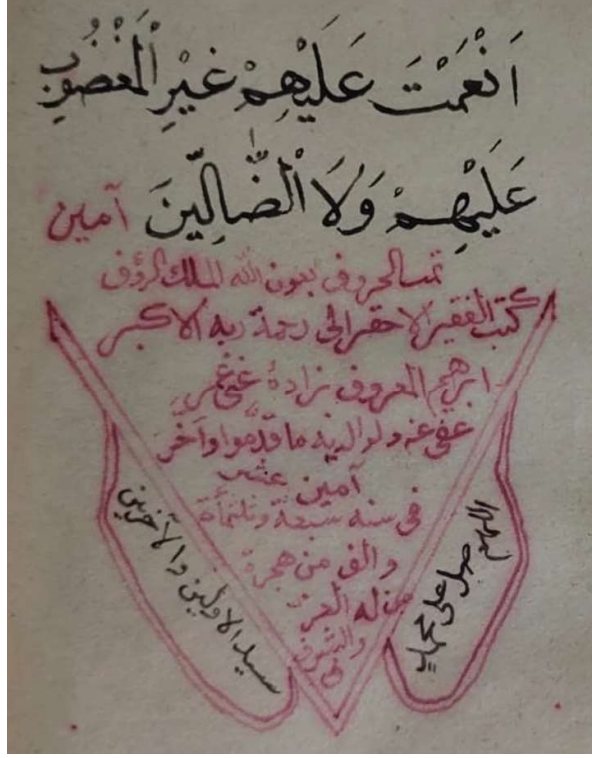 اَنْعَمْتَ عَلَيْهِمْ غَيْرِ الْمَغْضُوبِ
عَلَيْهِمْ وَلَا الضَّالِّينَ آمين
تمت الحروف بعون الله الملك الرؤف
كتب الفقير الاحقر الى رحمة ربه الاكبر
ابرهيم المعروف بزاده
عفى عنه ولوالديه ما قدموا وأخر
آمين عشر
فى سنه سبعة وثلثمأة
والف من هجرة
من له العز
والشرف
اللهم صل على محمد
سيد الاولين والآخرين